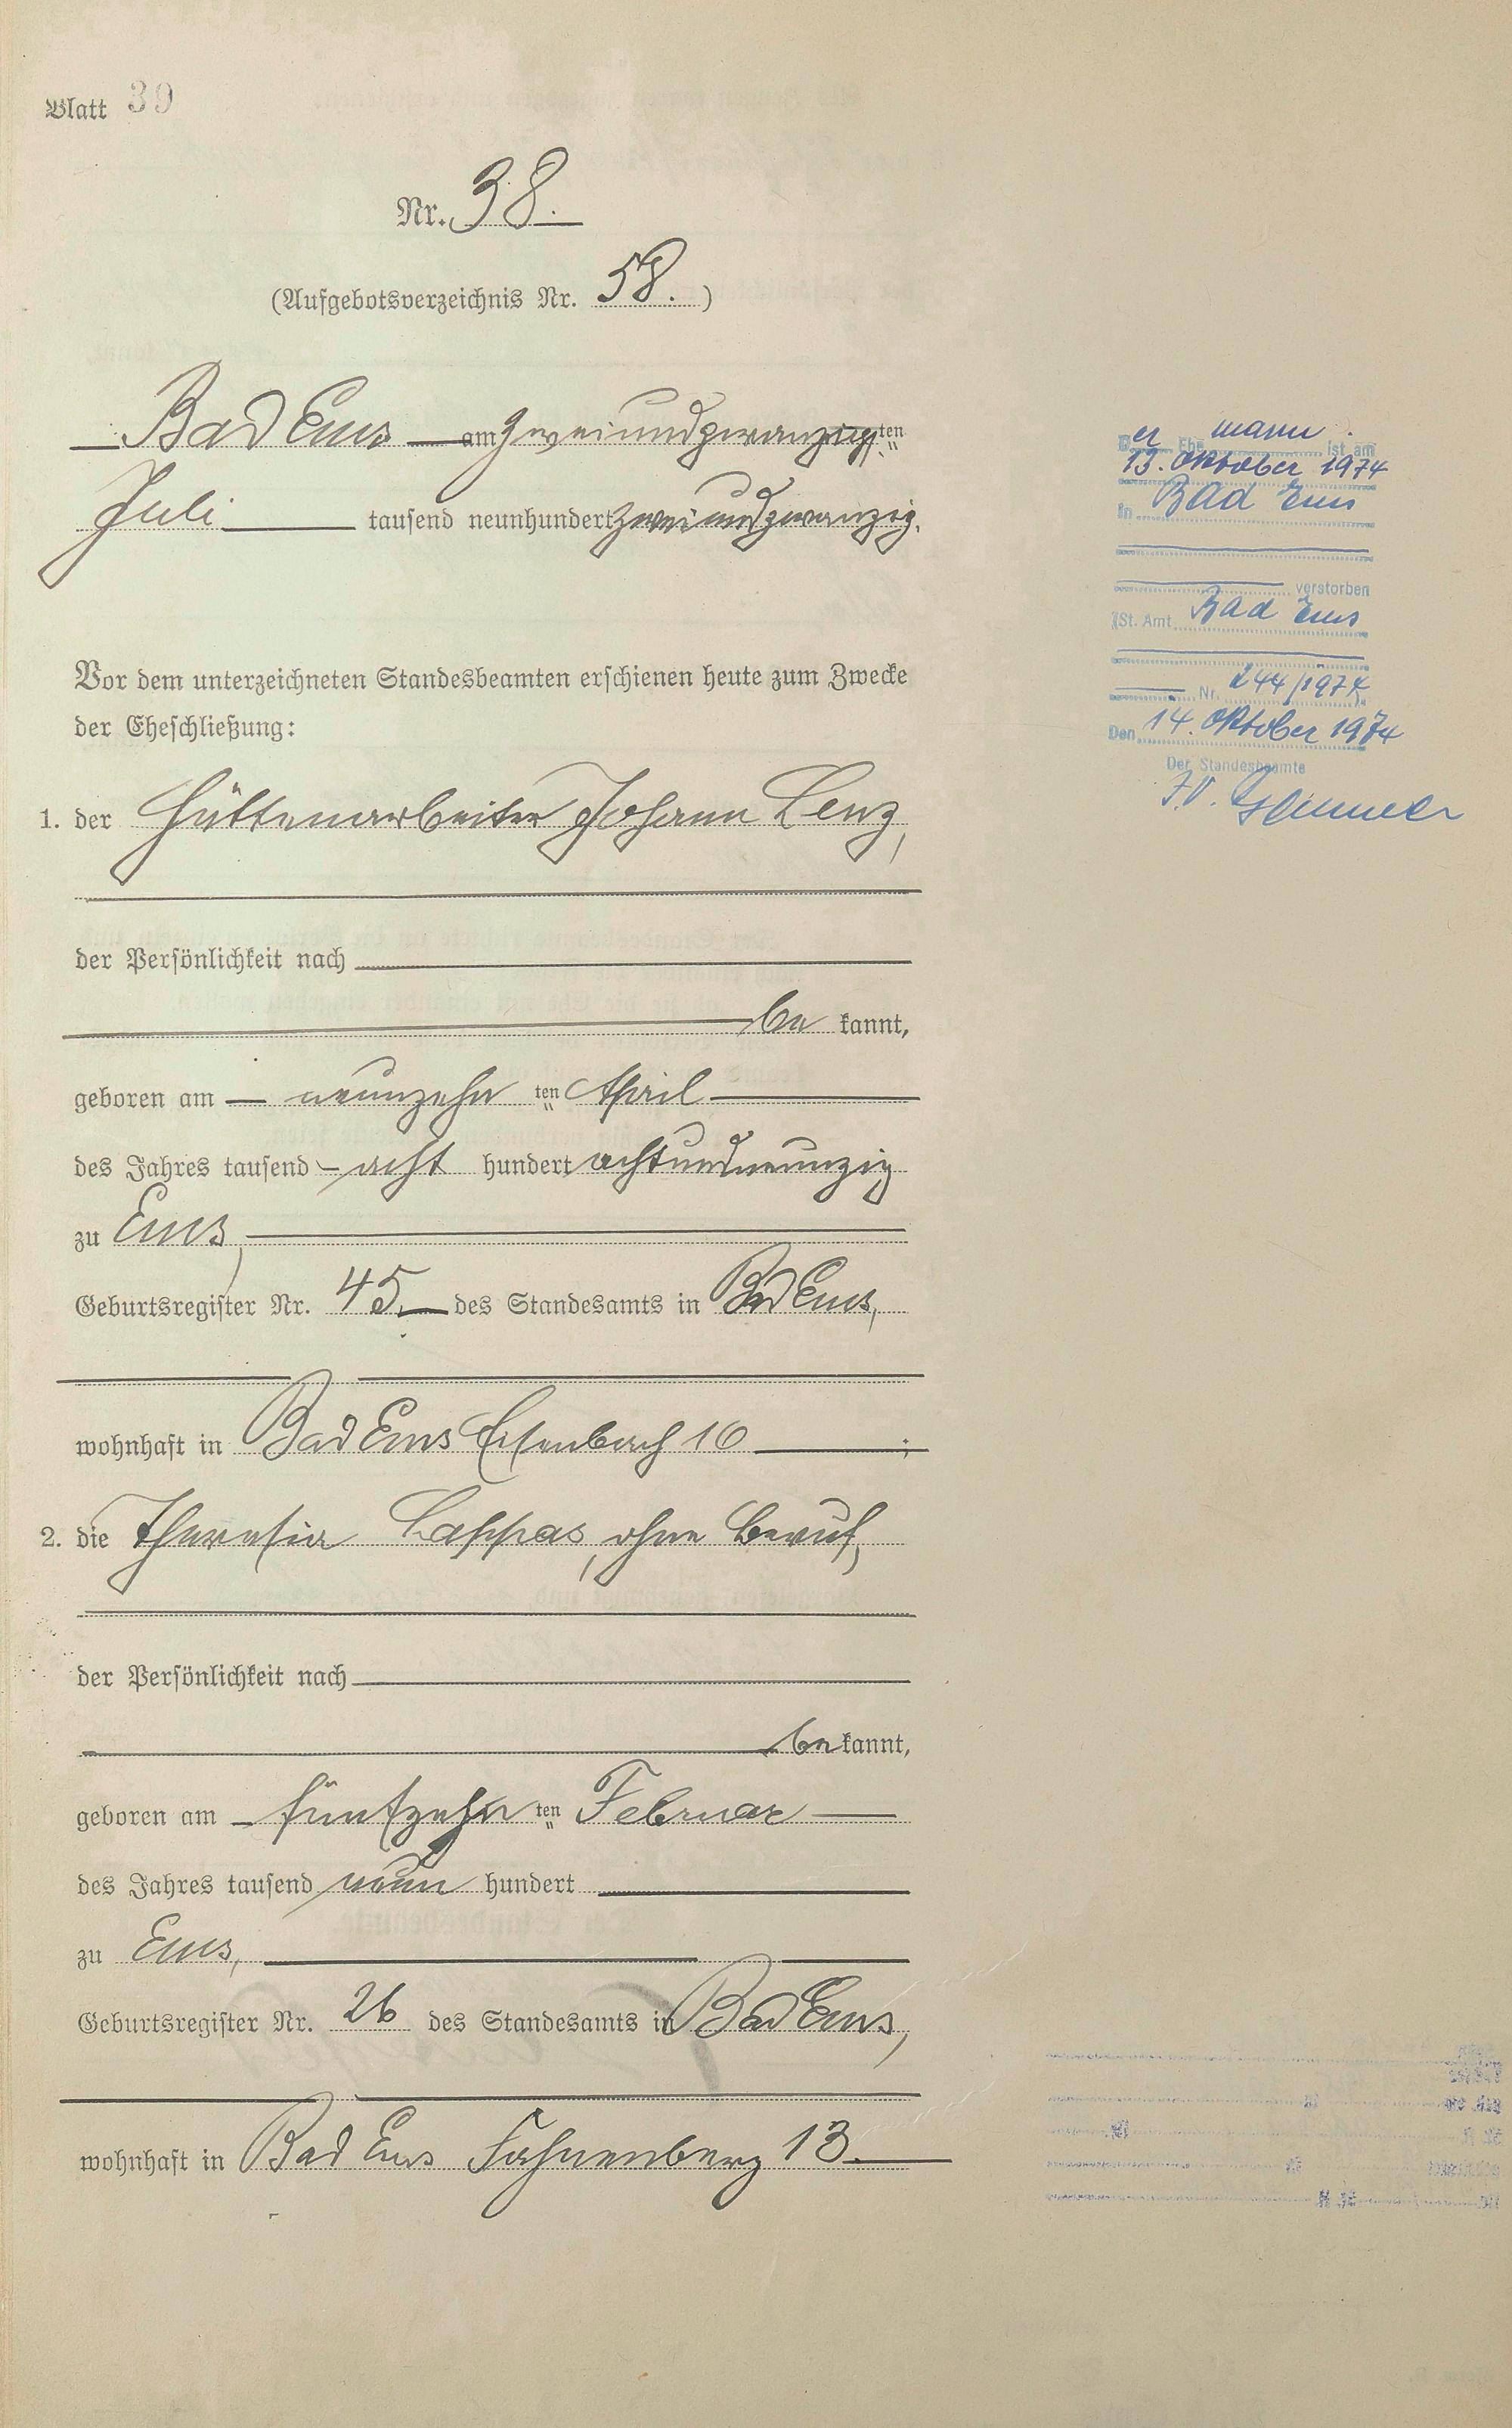 Blatt 39
Nr. 38.
(Aufgebotsverzeichnis Nr. 58.)
Bad Ems am zweiundzwanzigsten
Juli tausend neunhundert zweiundzwanzig.
Vor dem unterzeichneten Standesbeamten erschienen heute zum Zwecke
der Eheschließung:
1. der Hüttenarbeiter Johann Lenz,
der Persönlichkeit nach
be kannt,
geboren am neunzehn ten April
des Jahres tausend acht hundert achtundneunzig
zu Ems,
Geburtsregister Nr. 45 des Standesamts in Bad Ems,
wohnhaft in Bad Ems 16;
2. die Theresia Cappas, ohne Beruf,
der Persönlichkeit nach
be kannt,
geboren am fünfzehn ten Februar
des Jahres tausend neun hundert
zu Ems,
Geburtsregister Nr. 26 des Standesamts in Bad Ems,
wohnhaft in Bad Ems Fahnenberg 13.
Der Ehemann ist am
13. Oktober 1974
in Bad Ems
verstorben
(St. Amt Bad Ems
Nr. 244/1974
Den 14. Oktober 1974
Der Standesbeamte
I.V.